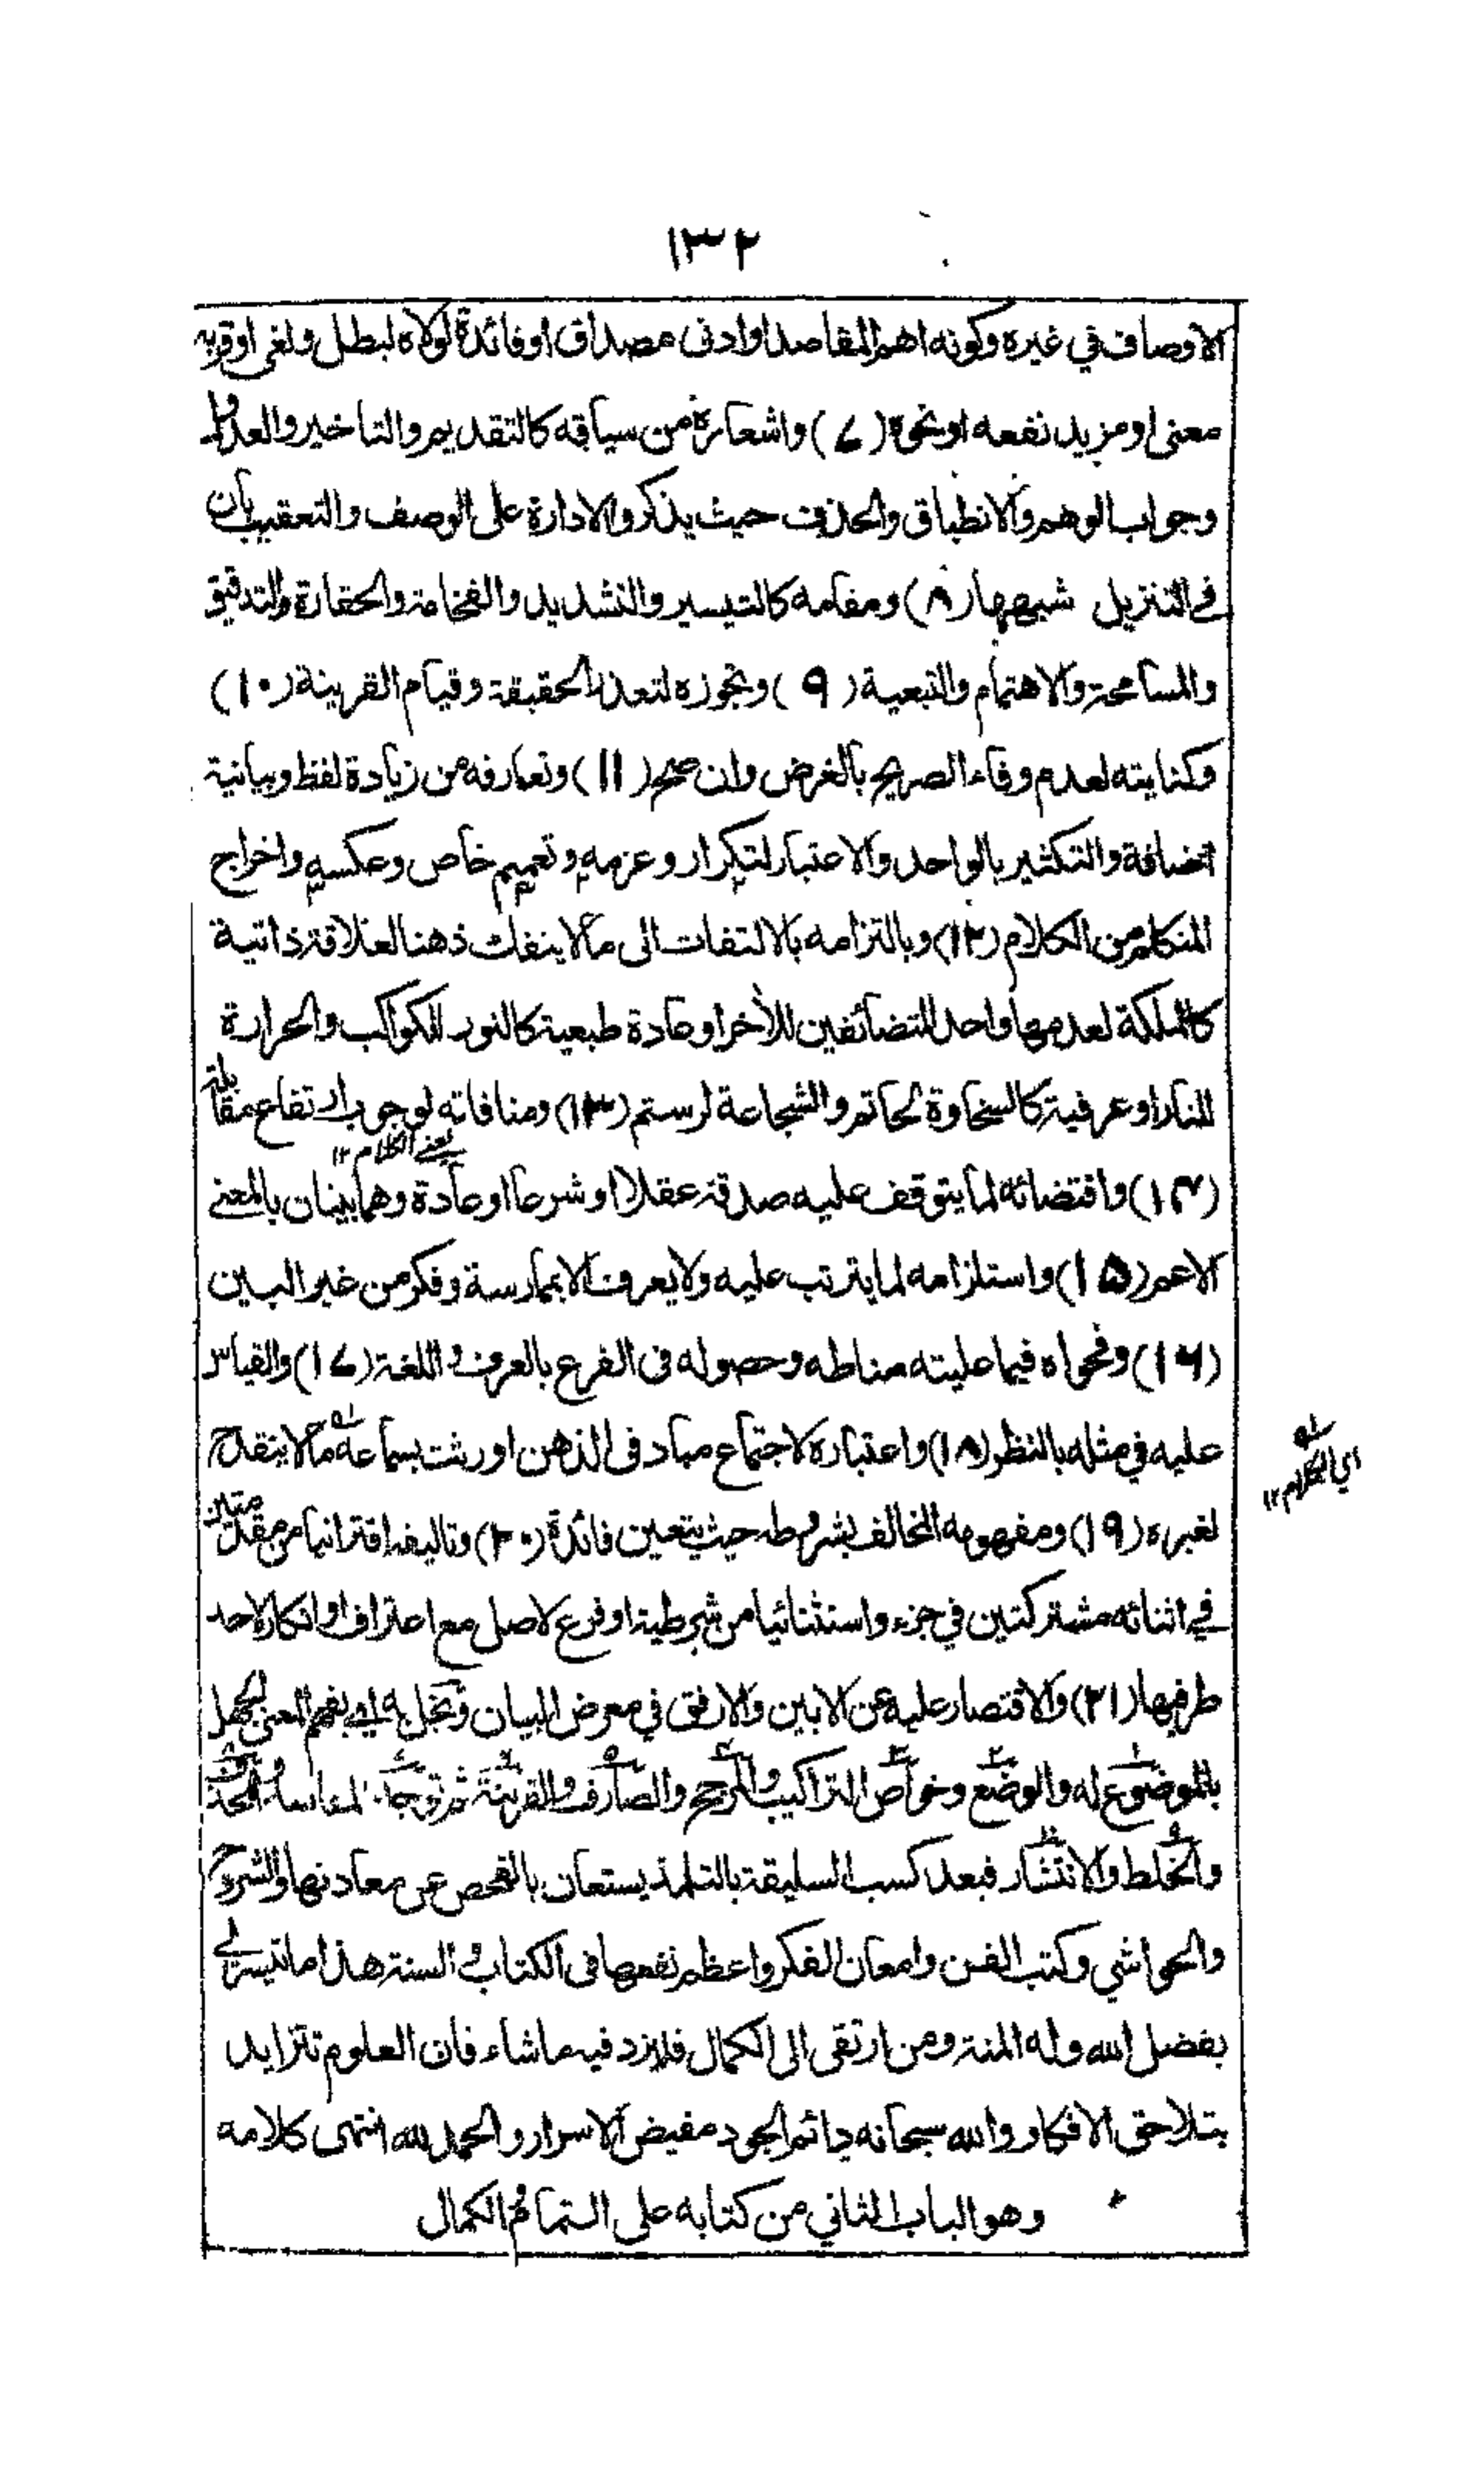 ١٣٢
الاوصاف في غيره وكونه اهم المقاصد او ادنى مصداق او فائدة لولاه لبطل ولغى او قربه
معنى او مزيد نفعه او نحوه (٧) واشعاره من سياقه كالتقديم والتاخير والعدول
وجواب الوهم والانطباق والحذف حيث يذكر والادارة على الوصف والتعقيب بان
في التنزيل شبهها (٨) ومقامه كالتيسير والتشديد والفخامة والحقارة والتدقيق
والمسامحة والاهتمام والتبعية (٩) وتجوزه لتعذر الحقيقة وقيام القرينة (١٠)
وكنايته لعدم وفاء الصريح بالغرض وان صح (١١) وتعارفه من زيادة لفظ وبيانية
اضافة والتكثير بالواحد والاعتبار لتكرار وعزمه وتعميم خاص وعكسه واخراج
المتكلم من الكلام (١٢) وبالتزامه بالالتفات الى ما لا ينفك ذهنا لعلاقة ذاتية
كالملكة لعدمها واحد المتضائفين للأخر او عادة طبعية كالنور للكواكب والحرارة
للنار او عرفية كالسخاوة لحاتم والشجاعة لرستم (١٣) ومنافاته لوجوب ارتفاع مقابله
يعني الكلام ١٢
(١٤) واقتضائه لما يتوقف عليه صدقه عقلا او شرعا او عادة وهما بينان بالمعنى
الاعم (١٥) واستلزامه لما يترتب عليه ولا يعرف الا بممارسة وفكر من غير البين
(١٦) وفحواه فيما علیته مناطه وحصوله فى الفرع بالعرف واللغة (١٧) والقياس
عليه في مثله بالنظر (١٨) واعتباره لاجتماع مباد فى الذهن اورثت بسماعه ما لا ينقدح
اي الكلام ١٢
لغيره (١٩) ومفهومه المخالف بشروطه حيث يتعين فائدة (٢٠) وتاليفه اقترانيا من مقدمتين
في اثنائه مشتركتين في جزء واستثنائيا من شرطية او فرع لاصل مع اعتراف او انكار لاحد
طرفيها (٢١) والاقتصار عليه عن الابين والارفق في معرض البيان ويخل به اي بفهم المعنى الجهل
بالموضوع له والوضع وخواص التراكيب والمرجح والصارف والقرينة ثم توجه
والخلط والانتشار فبعد كسب السليقة بالتلمذ يستعان بالفحص عن معادنها والشروح
والحواشي وكتب الفن وامعان الفكر واعظم نفعها فى الكتاب والسنة هذا ما تيسر لي
بفضل الله وله المنة ومن ارتقى الى الكمال فليزد فيه ما شاء فان العلوم تتزايد
بتلاحق الافكار والله سبحانه دائم الجود مفيض الاسرار والحمد لله انتهى كلامه
وهو الباب الثاني من كتابه على التمام والكمال